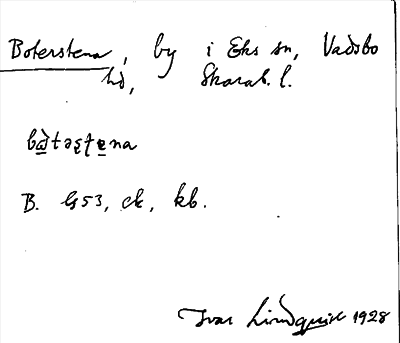 Boterstena, by i Eks sn, Vadsbo
hd, Skarab. l.
bòtəʂʈena
B. G53, ck, kb.
Ivar Lindquist 1928